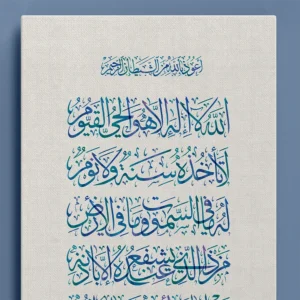 اعوذ بالله من الشيطان الرجيم
الله لا إله إلا هو الحي القيوم
لا تأخذه سنة ولا نوم
له ما في السموت وما في الأرض
من ذا الذي يشفع عنده إلا بإذنه